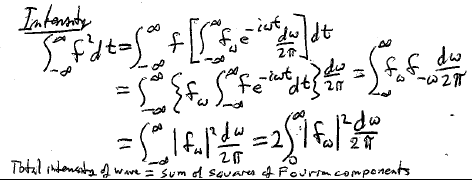 Intensity
∫_{-∞}^{∞} f² dt = ∫_{-∞}^{∞} f [ ∫_{-∞}^{∞} f_ω e^{-iωt} dω/2π ] dt
= ∫_{-∞}^{∞} { f_ω ∫_{-∞}^{∞} f e^{-iωt} dt } dω/2π = ∫_{-∞}^{∞} f_ω f_{-ω} dω/2π
= ∫_{-∞}^{∞} |f_ω|² dω/2π = 2 ∫_{0}^{∞} |f_ω|² dω/2π
Total intensity of wave = sum of squares of Fourier components